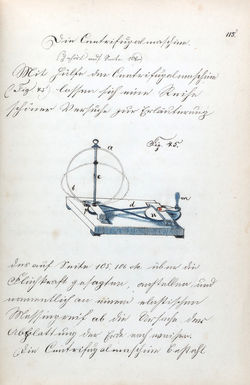 113.
Die Centrifugalmaschine.
(gehört auf Seite 106)
Mit Hülfe der Centrifugalmaschine
(Fig 45) lassen sich eine Reihe
schöner Versuche zur Erläuterung
Fig. 45.
a
b
m
des auf Seite 105, 106 etc. über die
Fliehkraft gesagten, anstellen und
namentlich an einem elastischen
Messingreif ab die Ursache der
Abplattung der Erde nachweisen.
Die Centrifugalmaschine besteht